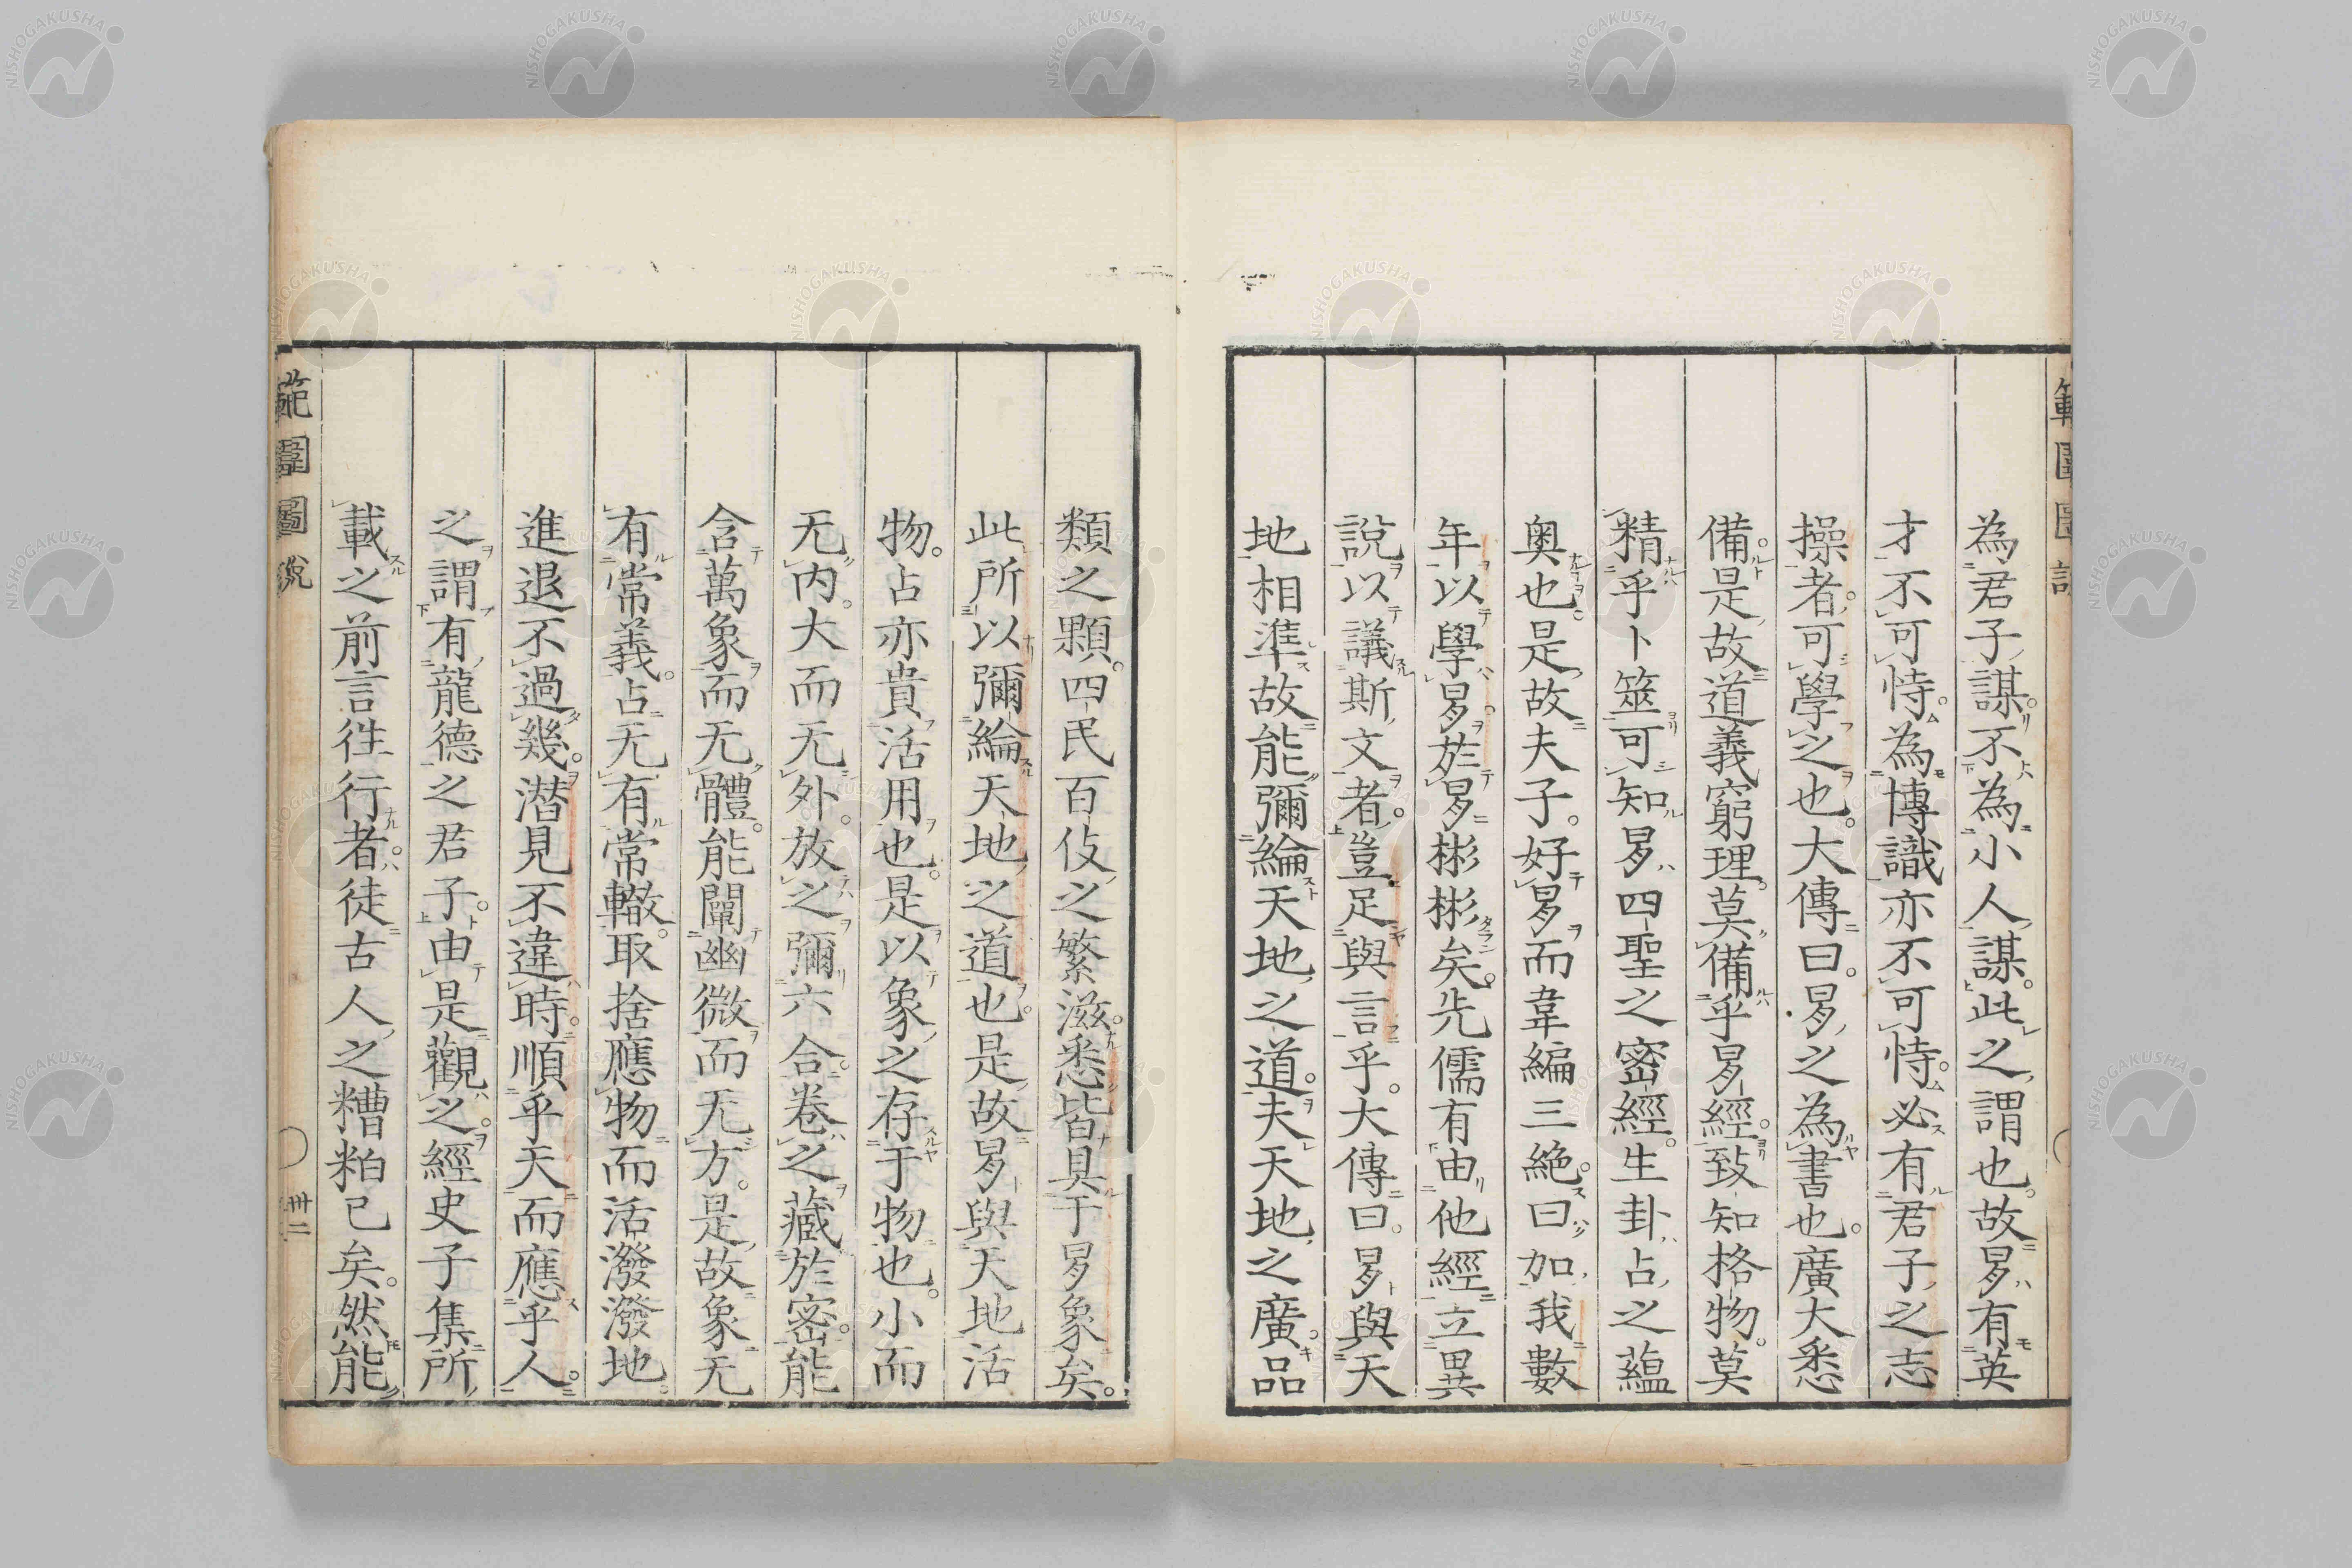 為君子謀。不為小人謀。此之謂也。故昜有英
才不可恃。為博識亦不可恃。必有君子之志
操者。可學之也。大傳曰。昜之為書也。廣大悉
備。是故道義窮理。莫備乎昜經。致知格物。莫
精乎卜筮可知昜四聖之密經。生卦占之蘊
奥也。是故夫子。好昜而韋編三絶。曰加我數
年以學昜。於昜彬彬矣。先儒有由他經立異
說以議斯文者。豈足與言乎。大傳曰。昜與天
地相準故能彌綸天地之道。夫天地之廣品
類之顆。四民百伎之繁滋。悉皆具于昜象矣。
此所以彌綸天地之道也。是故昜與天地活
物。占亦貴活用也。是以象之存于物也。小而
无内。大而无外。放之彌六合。卷之藏於密。能
含萬象而无體。能闡幽微而无方。是故象无
有常義。占无有常轍。取捨應物而活潑潑地
進退不過幾。潜見不違時。順乎天而應乎人。
之謂有龍德之君子。由是觀之。經史子集所
載之前言徃行者。徒古人之糟粕已矣。然能
範圍圖說
卌二